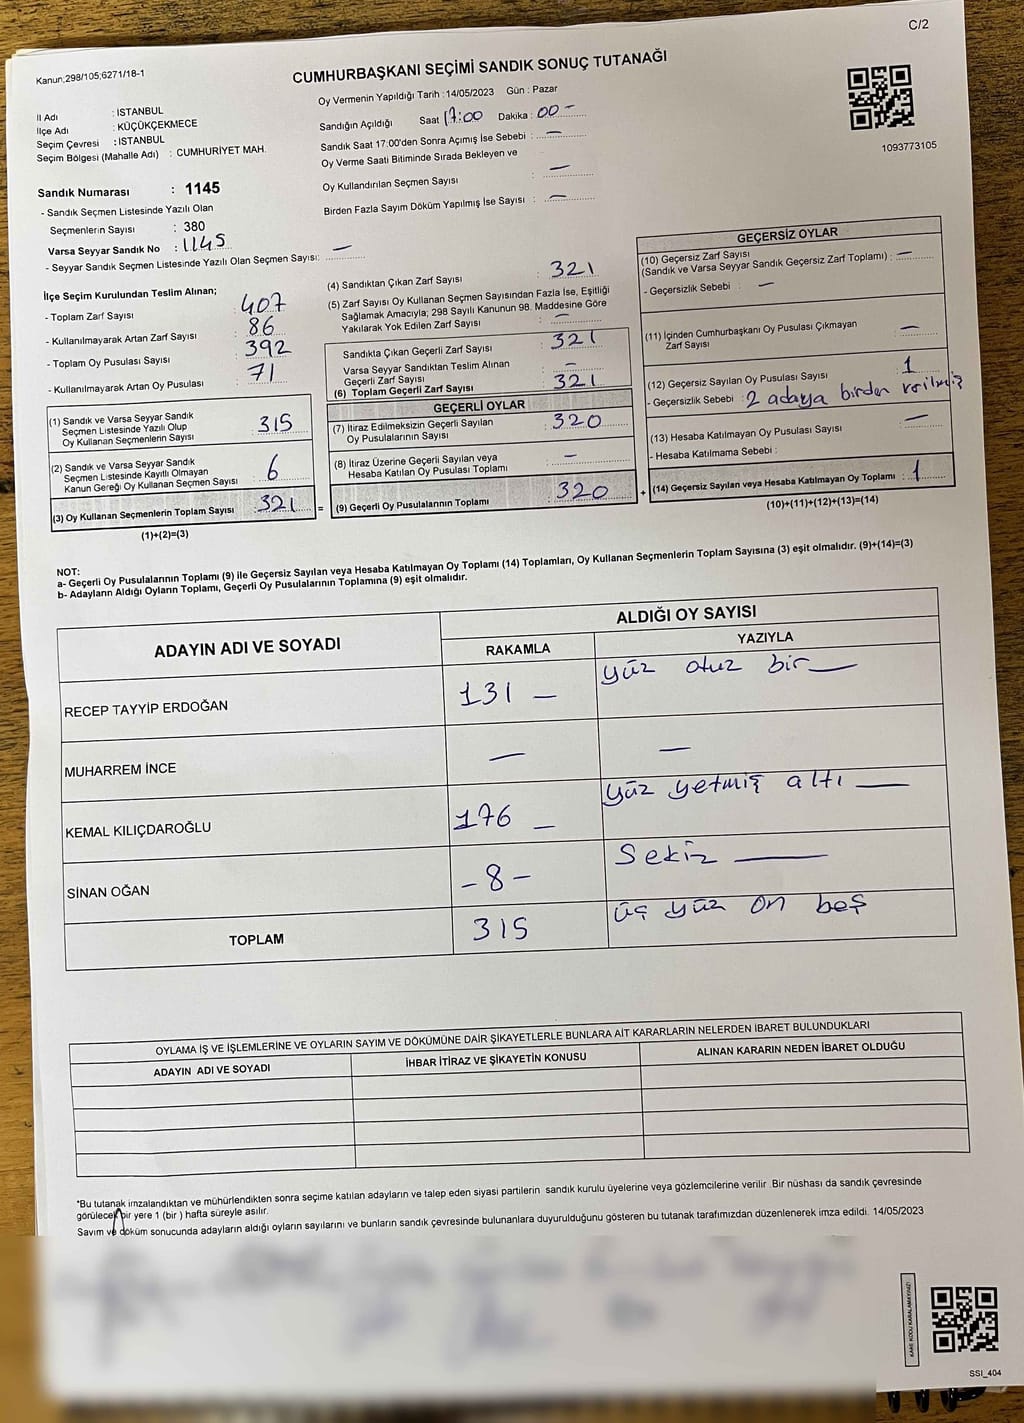 C/2
Kanun;298/105;6271/18-1
CUMHURBAŞKANI SEÇİMİ SANDIK SONUÇ TUTANAĞI
İl Adı : İSTANBUL
İlçe Adı : KÜÇÜKÇEKMECE
Seçim Çevresi : İSTANBUL
Seçim Bölgesi (Mahalle Adı) : CUMHURİYET MAH.
Oy Vermenin Yapıldığı Tarih : 14/05/2023 Gün : Pazar
Sandığın Açıldığı Saat 17:00 Dakika : 00 -
Sandık Saat 17:00'den Sonra Açımış İse Sebebi : —
Oy Verme Saati Bitiminde Sırada Bekleyen ve
Oy Kullandırılan Seçmen Sayısı : —
Birden Fazla Sayım Döküm Yapılmış İse Sayısı : —
1093773105
Sandık Numarası : 1145
- Sandık Seçmen Listesinde Yazılı Olan
Seçmenlerin Sayısı : 380
Varsa Seyyar Sandık No : 1145
- Seyyar Sandık Seçmen Listesinde Yazılı Olan Seçmen Sayısı: —
İlçe Seçim Kurulundan Teslim Alınan;
- Toplam Zarf Sayısı : 407
- Kullanılmayarak Artan Zarf Sayısı : 86
- Toplam Oy Pusulası Sayısı : 392
- Kullanılmayarak Artan Oy Pusulası : 71
(1) Sandık ve Varsa Seyyar Sandık
Seçmen Listesinde Yazılı Olup
Oy Kullanan Seçmenlerin Sayısı : 315
(2) Sandık ve Varsa Seyyar Sandık
Seçmen Listesinde Kayıtlı Olmayan
Kanun Gereği Oy Kullanan Seçmen Sayısı : 6
(3) Oy Kullanan Seçmenlerin Toplam Sayısı : 321
(1)+(2)=(3)
(4) Sandıktan Çıkan Zarf Sayısı : 321
(5) Zarf Sayısı Oy Kullanan Seçmen Sayısından Fazla İse, Eşitliği
Sağlamak Amacıyla; 298 Sayılı Kanunun 98. Maddesine Göre
Yakılarak Yok Edilen Zarf Sayısı : —
Sandıkta Çıkan Geçerli Zarf Sayısı : 321
Varsa Seyyar Sandıktan Teslim Alınan
Geçerli Zarf Sayısı : —
(6) Toplam Geçerli Zarf Sayısı : 321
GEÇERLİ OYLAR
(7) İtiraz Edilmeksizin Geçerli Sayılan
Oy Pusulalarının Sayısı : 320
(8) İtiraz Üzerine Geçerli Sayılan veya
Hesaba Katılan Oy Pusulası Toplamı : —
= (9) Geçerli Oy Pusulalarının Toplamı : 320 +
GEÇERSİZ OYLAR
(10) Geçersiz Zarf Sayısı
(Sandık ve Varsa Seyyar Sandık Geçersiz Zarf Toplamı) : —
- Geçersizlik Sebebi : —
(11) İçinden Cumhurbaşkanı Oy Pusulası Çıkmayan
Zarf Sayısı : —
(12) Geçersiz Sayılan Oy Pusulası Sayısı : 1
- Geçersizlik Sebebi : 2 adaya birden verilmiş
(13) Hesaba Katılmayan Oy Pusulası Sayısı : —
- Hesaba Katılmama Sebebi :
(14) Geçersiz Sayılan veya Hesaba Katılmayan Oy Toplamı : 1
(10)+(11)+(12)+(13)=(14)
NOT:
a- Geçerli Oy Pusulalarının Toplamı (9) ile Geçersiz Sayılan veya Hesaba Katılmayan Oy Toplamı (14) Toplamları, Oy Kullanan Seçmenlerin Toplam Sayısına (3) eşit olmalıdır. (9)+(14)=(3)
b- Adayların Aldığı Oyların Toplamı, Geçerli Oy Pusulalarının Toplamına (9) eşit olmalıdır.
ADAYIN ADI VE SOYADI ALDIĞI OY SAYISI
RAKAMLA YAZIYLA
RECEP TAYYİP ERDOĞAN 131 — yüz otuz bir —
MUHARREM İNCE — —
KEMAL KILIÇDAROĞLU 176 — yüz yetmiş altı —
SİNAN OĞAN - 8 - Sekiz —
TOPLAM 315 üç yüz on beş
OYLAMA İŞ VE İŞLEMLERİNE VE OYLARIN SAYIM VE DÖKÜMÜNE DAİR ŞİKAYETLERLE BUNLARA AİT KARARLARIN NELERDEN İBARET BULUNDUKLARI
ADAYIN ADI VE SOYADI İHBAR İTİRAZ VE ŞİKAYETİN KONUSU ALINAN KARARIN NEDEN İBARET OLDUĞU
*Bu tutanak imzalandıktan ve mühürlendikten sonra seçime katılan adayların ve talep eden siyasi partilerin sandık kurulu üyelerine veya gözlemcilerine verilir .Bir nüshası da sandık çevresinde
görülecek bir yere 1 (bir ) hafta süreyle asılır.
Sayım ve döküm sonucunda adayların aldığı oyların sayılarını ve bunların sandık çevresinde bulunanlara duyurulduğunu gösteren bu tutanak tarafımızdan düzenlenerek imza edildi. 14/05/2023
KARE KODU KARALAMAYINIZ!
SSI_404